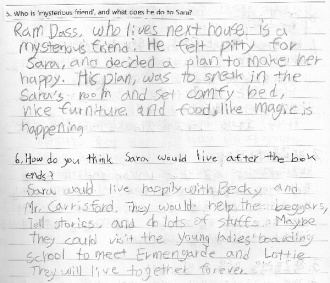 5. Who is 'mysterious friend', and what does he do to Sara?
Ram Dass, who lives next house is a
mysterious friend. He felt pitty for
Sara, and decided a plan to make her
happy. His plan, was to sneak in the
Sara's room and set comfy bed,
nice furniture and food, like magic is
happening
6. How do you think Sara would live after the book
ends?
Sara would live happily with Becky and
Mr. Carrisford. They would help the beggars,
Tell stories, and do lots of stuffs. Maybe
They could visit the young ladies' boarding
School to meet Ermengarde and Lottie.
They will live together forever.